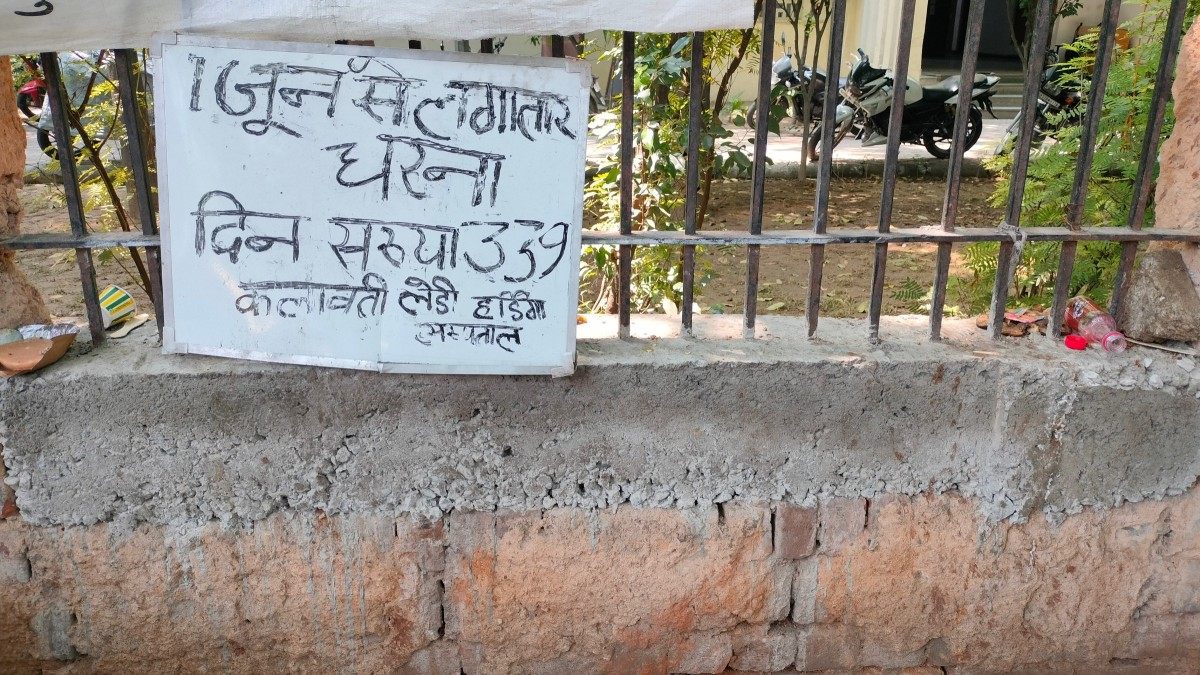 1 जून सें लगातार
धरना
दिन सख्या 339
कलावती लेडी हार्डिंग
अस्पताल